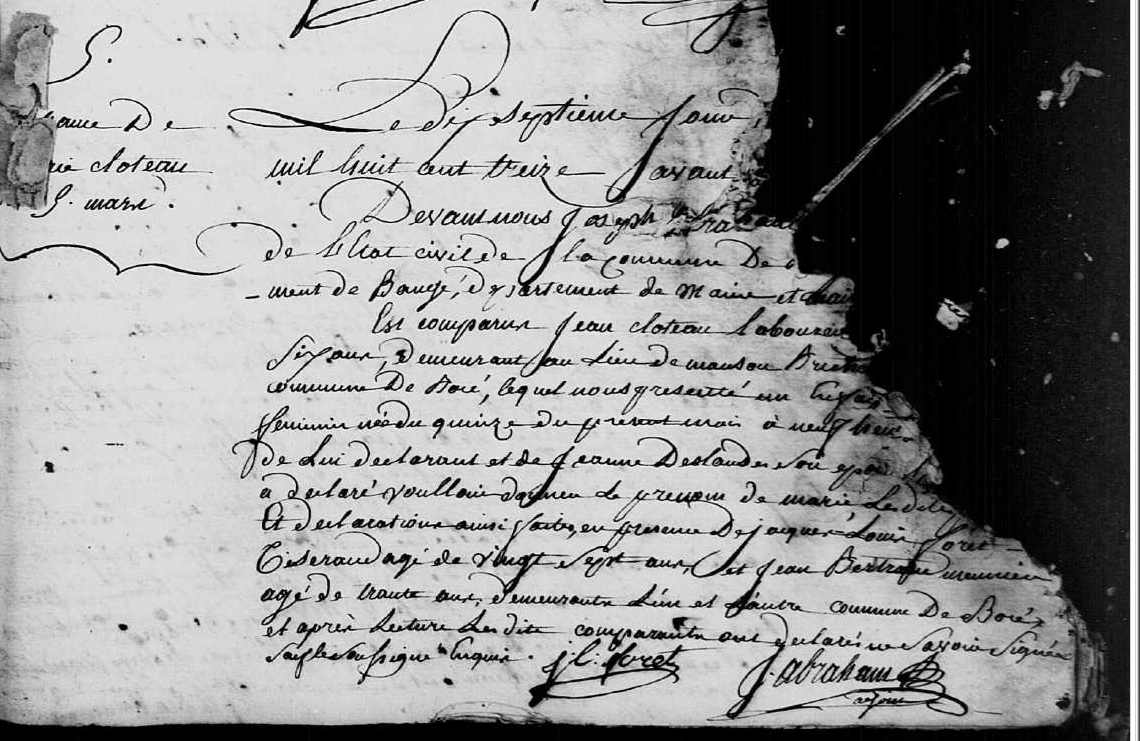 5.
de
cloteau
5. mars.
Le dix septieme jour
mil huit cent treize avant
Devant nous Joseph abraham
de L'Etat civil de la commune De
-ment de Baugé, departement de Maine et
Est comparu Jean cloteau laboureur
six ans, demeurant au Lieu de
commune De Bocé, lequel nous presenté un Enfan
feminin née du quinze du present mois à neuf heu
de Lui declarant et de Jeanne Deslandes Son epou
a declaré voulloir donner Le prenom de marie Lesdites
Et declarations ainsi faites, en presence De jacques Louis Foret
Tiserand agé de vingt sept ans, et Jean Bertrand meunier
agé de trante ans, demeurants L'un et L'autre commune De Bocé,
et après Lecture Lesdits comparants ont declarés ne Savoir Signer
Saufs Le Soussigné Enquis. j. l. foret J. abraham
adjoint